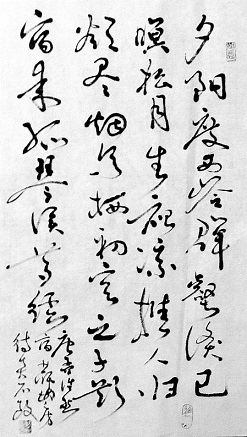 夕阳度西岭群壑倏已
暝松月生夜凉樵人归
欲尽烟鸟栖初定之子期
宿来孤琴候萝径
唐孟浩然
宿业师山房